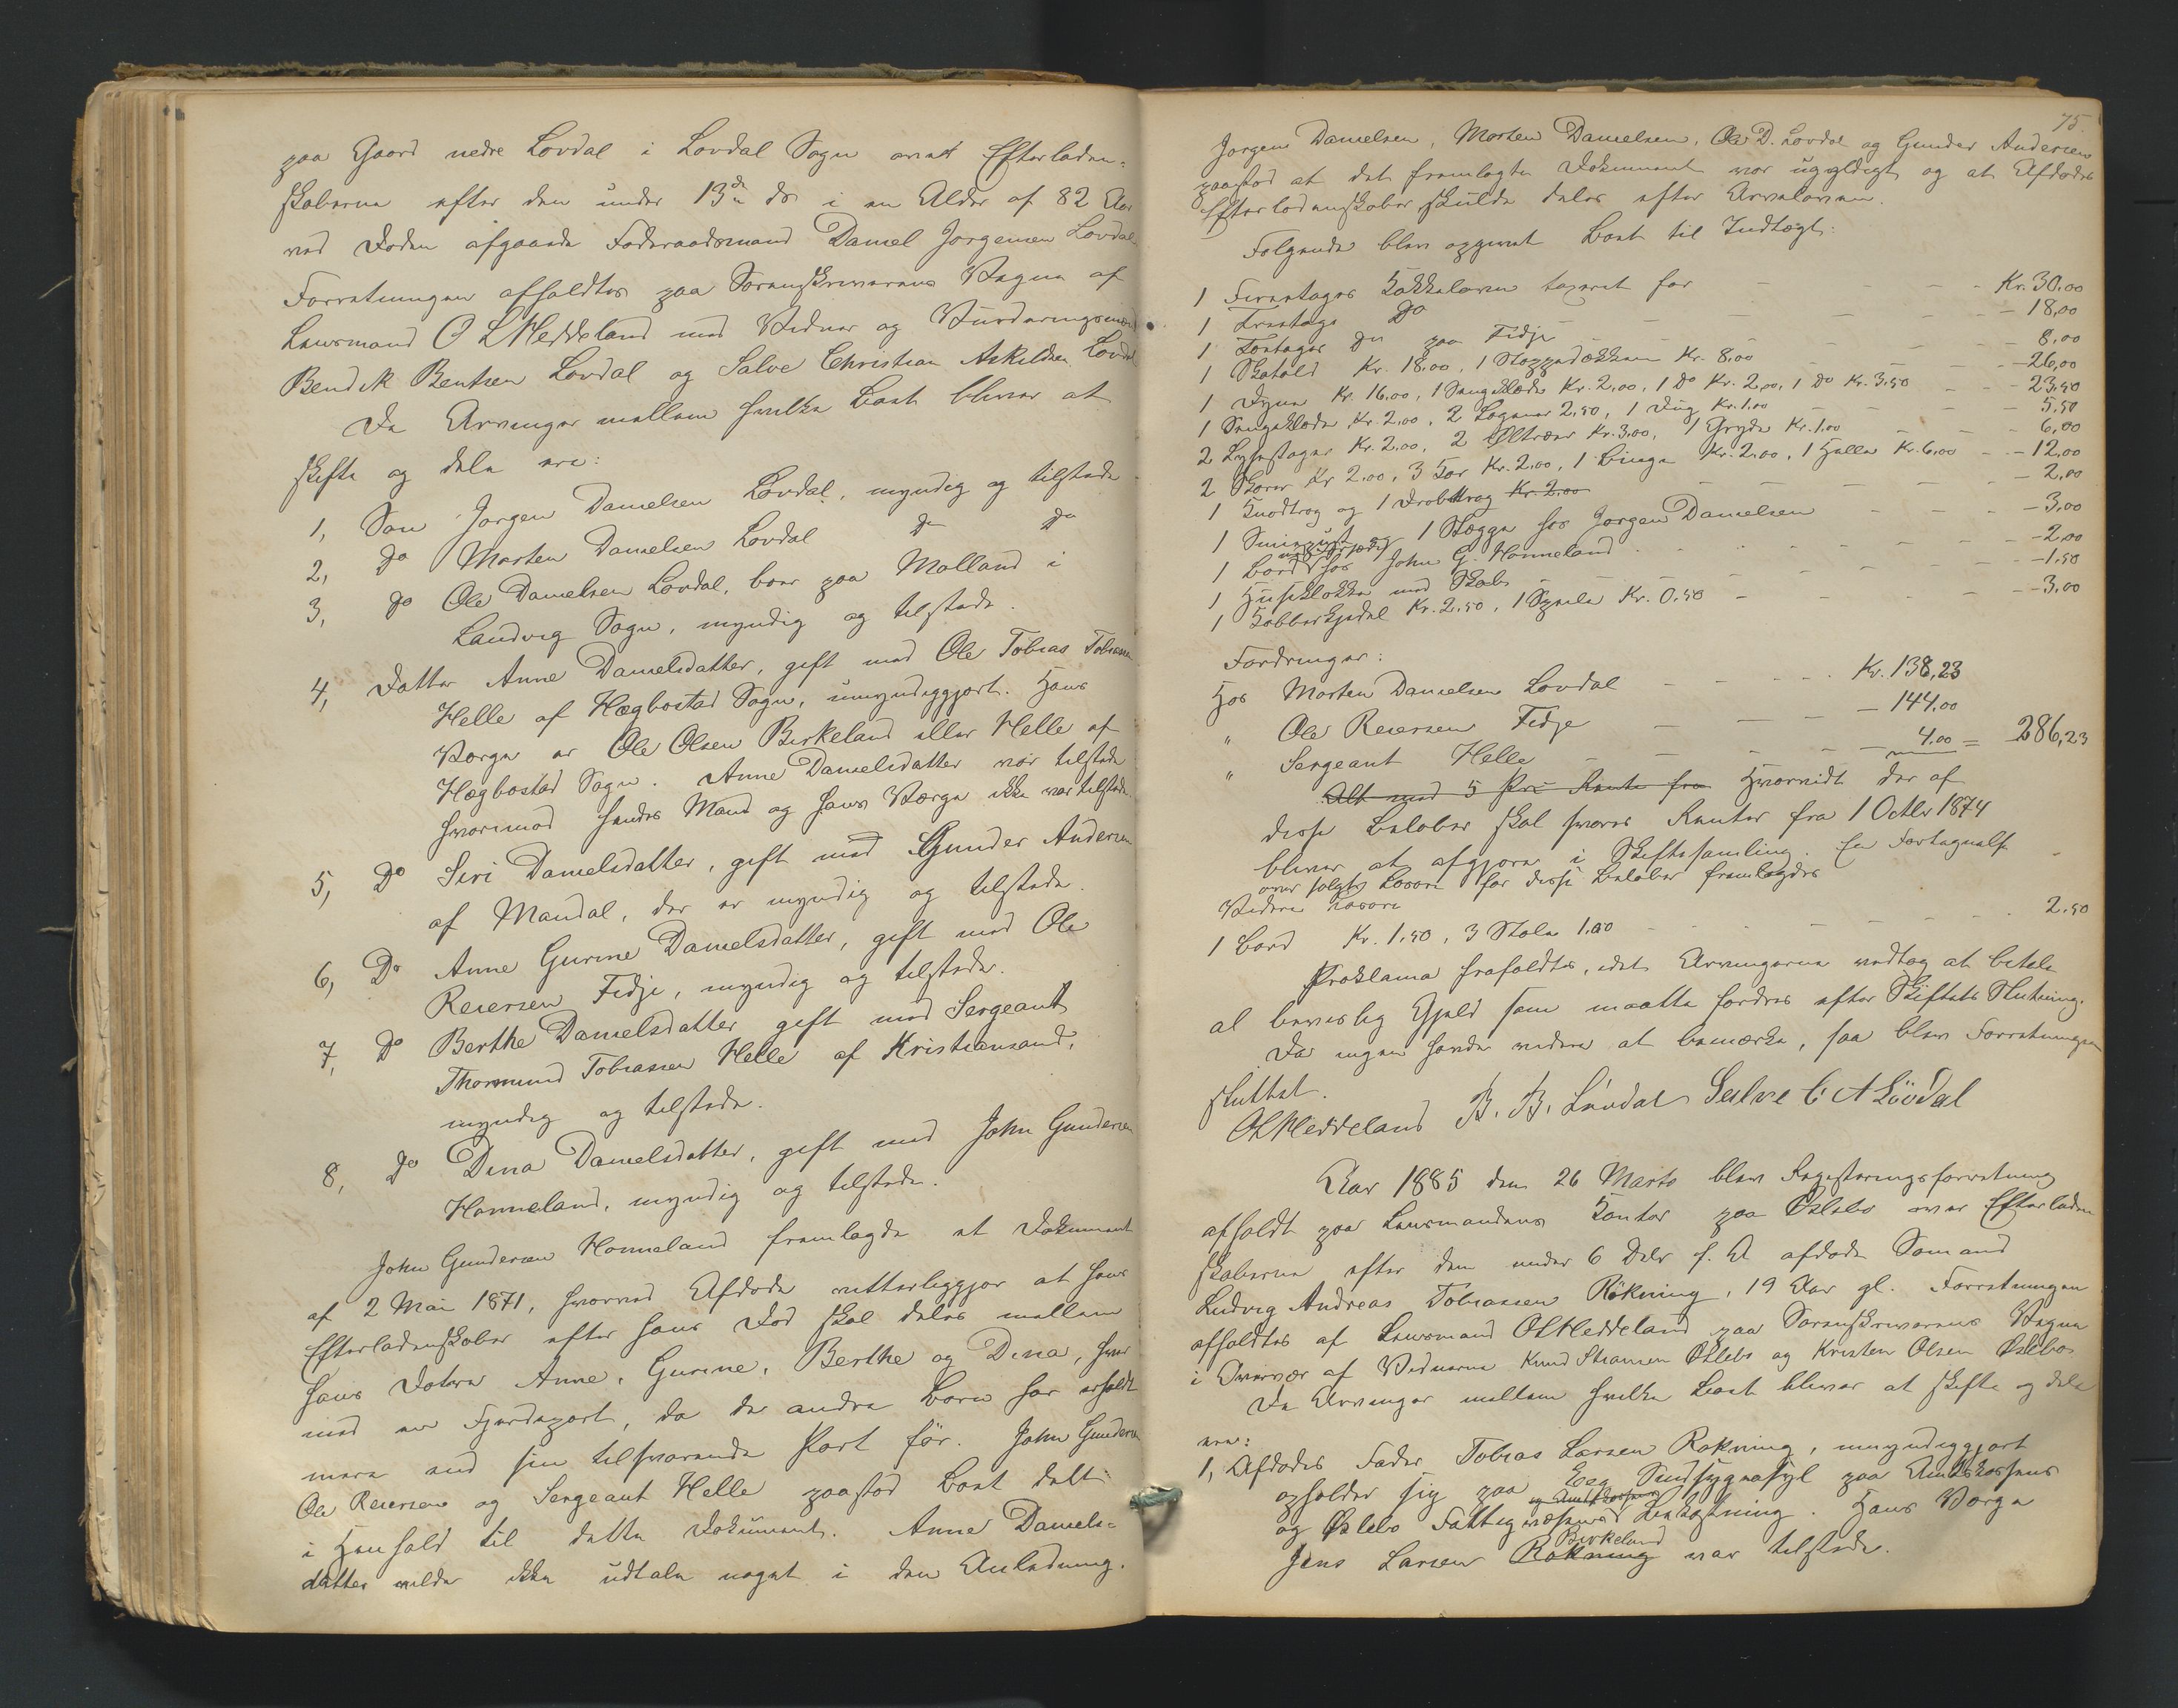 paa Gaard nedre Lovdal i Lovdal Sogn over Efterladen-
skaberne efter den under 13de ds i en Alder af 82 Aar
ved Døden afgaaede Føderaadsmand Daniel Jørgensen Lovdal
Forretningen afholdtes paa Sorenskriverens Vegne af
Lensmand O L Meddeland med Vidner og Vurderingsmænd
Bendik Bentsen Lovdal og Salve Christian Askildsen Lovdal
De Arvinger mellem hvilke Boet bliver at
skifte og dele ere:
1, Søn Jørgen Danielsen Lovdal, myndig og tilstede
2, Do Morten Danielsen Lovdal Do Do
3, Do Ole Danielsen Lovdal, boer paa Molland i
Landvig Sogn, myndig og tilstede.
4, Datter Anne Danielsdatter, gift med Ole Tobias Tobiassen
Helle af Hægbostad Sogn, umyndiggjort. Hans
Værge er Ole Olsen Birkeland eller Helle af
Hægbostad Sogn. Anne Danielsdatter var tilstede
hvorimod hendes Mand og hans Værge ikke var tilstede.
5, Do Siri Danielsdatter, gift med Gunder Andersen
af Mandal, der er myndig og tilstede.
6, Do Anne Gurine Danielsdatter, gift med Ole
Reiersen Fidje, myndig og tilstede.
7, Do Berthe Danielsdatter gift med Sergeant
Thormund Tobiassen Helle af Kristiansand,
myndig og tilstede.
8, Do Dina Danielsdatter, gift med John Gundersen
Honneland, myndig og tilstede.
John Gundersen Honneland fremlagde et Dokument
af 2 Mai 1871, hvorved Afdøde vitterliggjør at hans
Efterladenskaber efter hans Død skal deles mellem
hans Døtre Anne, Gurine, Berthe og Dina, hver
med en Fjerdepart, da de andre Børn har erholdt
mere end sin tilsvarende Part før. John Gundersen
Ole Reiersen og Sergeant Helle paastod Boet delt
i Henhold til dette Dokument. Anne Daniels-
datter vilde ikke udtale noget i den Anledning.
75.
Jørgen Danielsen, Morten Danielsen, Ole D. Lovdal og Gunder Andersen
paastod at det fremlagte Dokument var ugyldigt og at Afdødes
Efterladenskaber skulde deles efter Arveloven.
Følgende blev opgivet Boet til Indtægt:
1 Fireetages Kakkelovn taxeret for - - - Kr. 30,00
1 Treetages Do - - - 18,00
1 Toetages Do paa Fidje - - - 8,00
1 Kr. 18,00, 1 Kr. 8,00 - - - 26,00
1 Dyne Kr. 16,00, 1 Sengeklæde Kr. 2,00, 1 Do Kr. 2,00, 1 Do Kr. 3,50 - - 23,50
1 Sengeklæde Kr. 2,00, 2 Lagener 2,50, 1 Dug Kr. 1,00 - - - 5,50
2 Lysestager Kr. 2,00, 2 Kr. 3,00, 1 Gryde Kr. 1,00 - - - 6,00
2 Kr 2,00, 3 Kar Kr. 2,00, 1 Binge Kr. 2,00, 1 Kr. 6,00 - - 12,00
1 Knodtrog og 1 Kr. 2.00 - - - 2,00
1 og 1 hos Jørgen Danielsen - - - 3,00
1 Bord hos John G. Honneland - - - 2,00
1 Husklokke med Skab - - - 1,50
1 Kobberkjedel Kr. 2,50, 1 Kr. 0,50 - - - 3,00
Fordringer:
Hos Morten Danielsen Lovdal - - - Kr. 138,23
" Ole Reiersen Fidje - - - 144,00
" Sergeant Helle - - - 4,00 = 286,23
Alt med 5 Pct Rente fra Hvorvidt der af
disse Beløber skal svares Renter fra 1 Octbr 1874
bliver at afgjøre i Skiftesamling. En Fortegnelse
over solgte Løsøre for disse Beløber fremlagdes
Videre Løsøre
1 Bord Kr. 1,50, 3 Stole 1,00 - - - 2,50
Proklama frafaldtes, idet Arvingerne vedtog at betale
al beviislig Gjæld som maatte fordres efter Skiftets Slutning.
Da ingen havde videre at bemærke, saa blev Forretningen
sluttet.
OLMeddeland B. B. Lövdal Salve C A Lövdal
Aar 1885 den 26 Marts blev Registreringsforretning
afholdt paa Lensmandens Kontor paa Øslebø over Efterladen
skaberne efter den under 6 Dcbr f. A afdøde Sømand
Ludvig Andreas Tobiassen Røkning, 19 Aar gl. Forretningen
afholdtes af Lensmand OLMeddeland paa Sorenskriverens Vegne
i Overvær af Vidnerne Knud Øslebø og Kristen Olsen Øslebø
De Arvinger mellem hvilke Boet bliver at skifte og dele
ere:
1, Afdødes Fader Tobias Larsen Røkning, umyndiggjort
opholder sig paa Eeg Sindsygeasyl paa Amtskassens
og Øslebø Fattigvæsens Bekostning. Hans Værge
Jens Larsen Røkning Birkeland var tilstede.